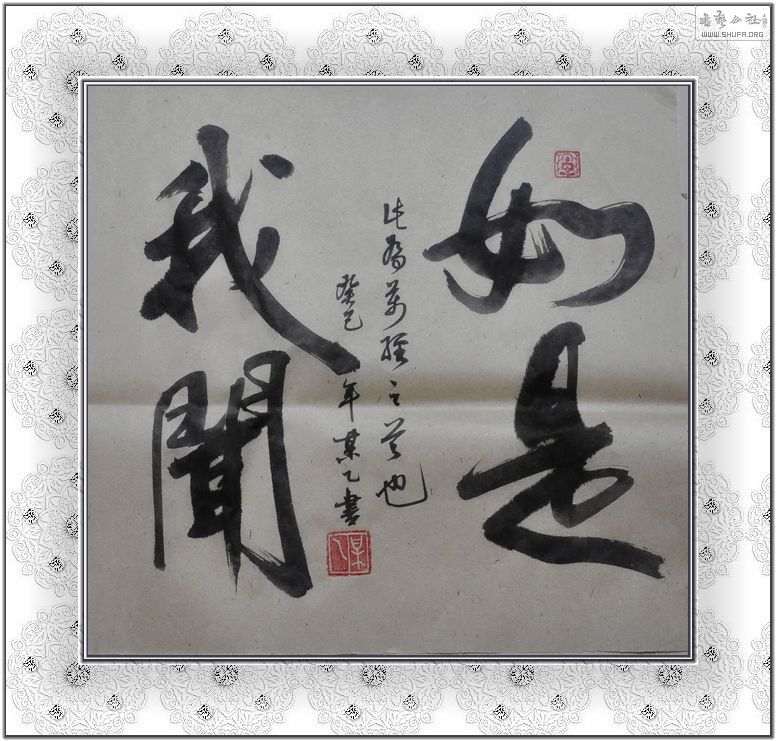 如是
我聞
此為萬經之首也
癸巳年某乙書
WWW.SHUFA.ORG